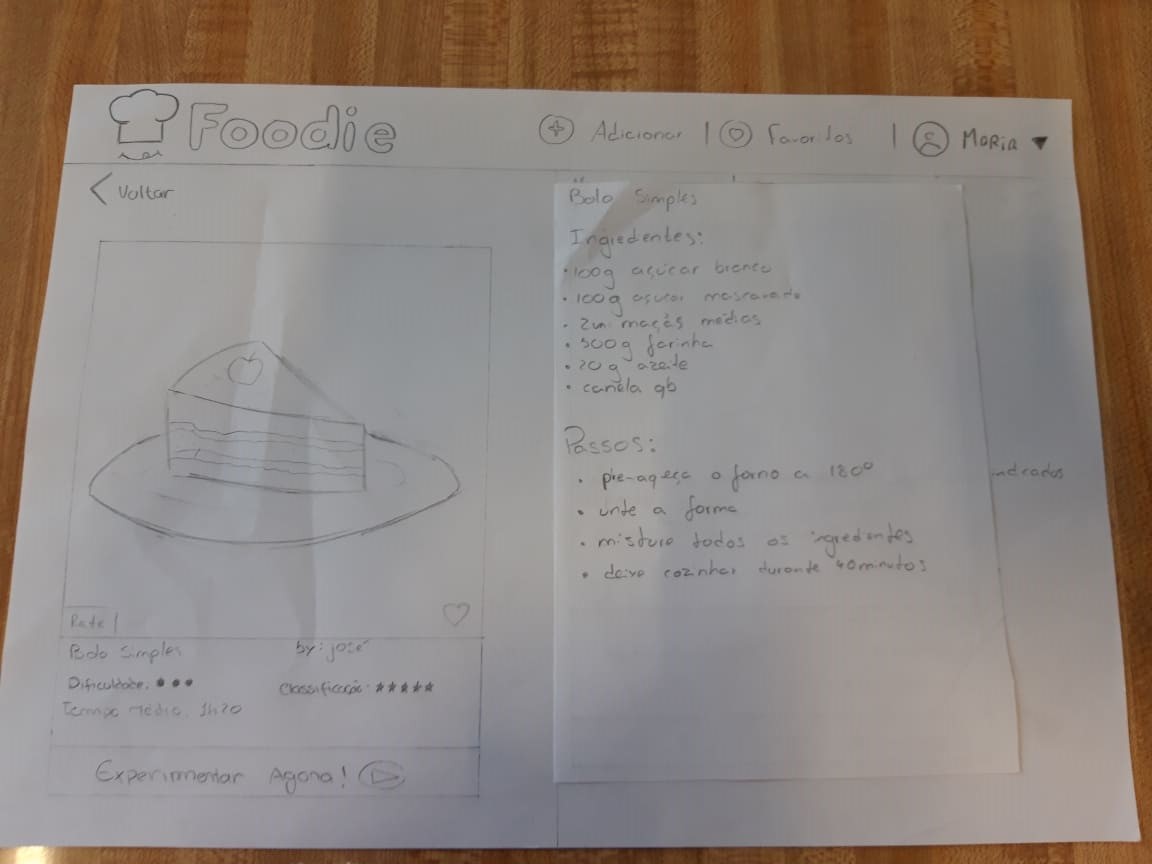 Foodie
Adicionar | Favoritos | Maria
Voltar
Rate
Bolo Simples by: José
Dificuldade: Classificação: *****
Tempo Médio: 1h20
Experimentar Agora!
Bolo Simples
Ingredentes:
• 100g açúcar branco
• 100g açucar mascavado
• 2un maçãs médias
• 500g farinha
• 20g azeite
• canela qb
Passos:
• pre-aqeça o forno a 180º
• unte a forma
• misture todos os ingredentes
• deixe cozinhar durante 40minutos